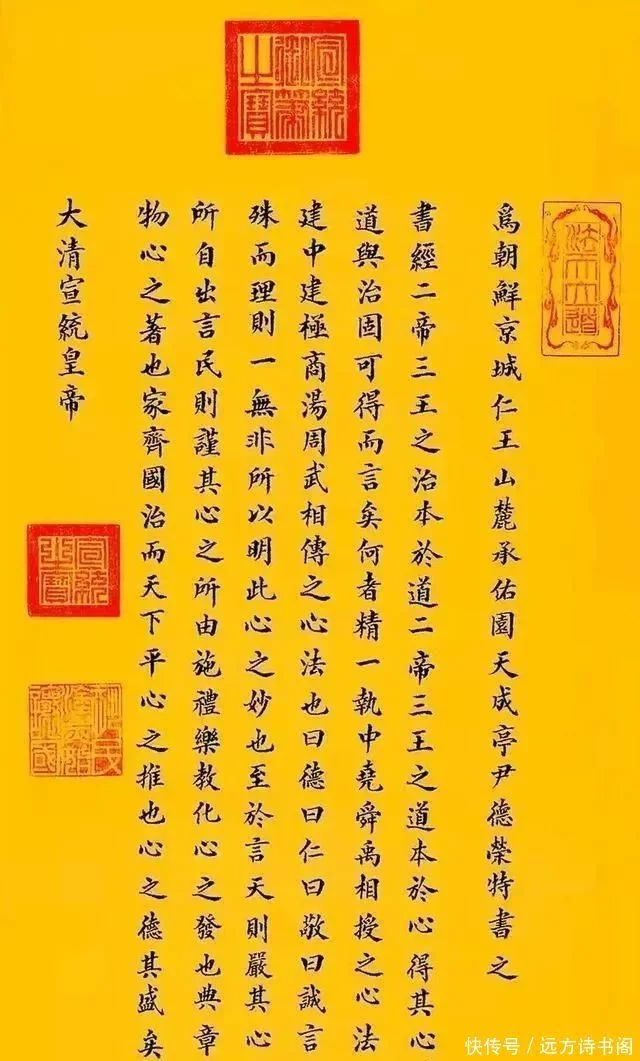 宣統御筆之寶
法天立道
爲朝鮮京城仁王山麓承佑園天成亭尹德榮特書之
書經二帝三王之治本於道二帝三王之道本於心得其心
道與治固可得而言矣何者精一執中堯舜禹相授之心法
建中建極商湯周武相傳之心法也曰德曰仁曰敬曰誠言
殊而理則一無非所以明此心之妙也至於言天則嚴其心
所自出言民則謹其心之所由施禮樂教化心之發也典章
物心之著也家齊國治而天下平心之推也心之德其盛矣
大清宣統皇帝
宣統之寶
快传号/远方诗书阁